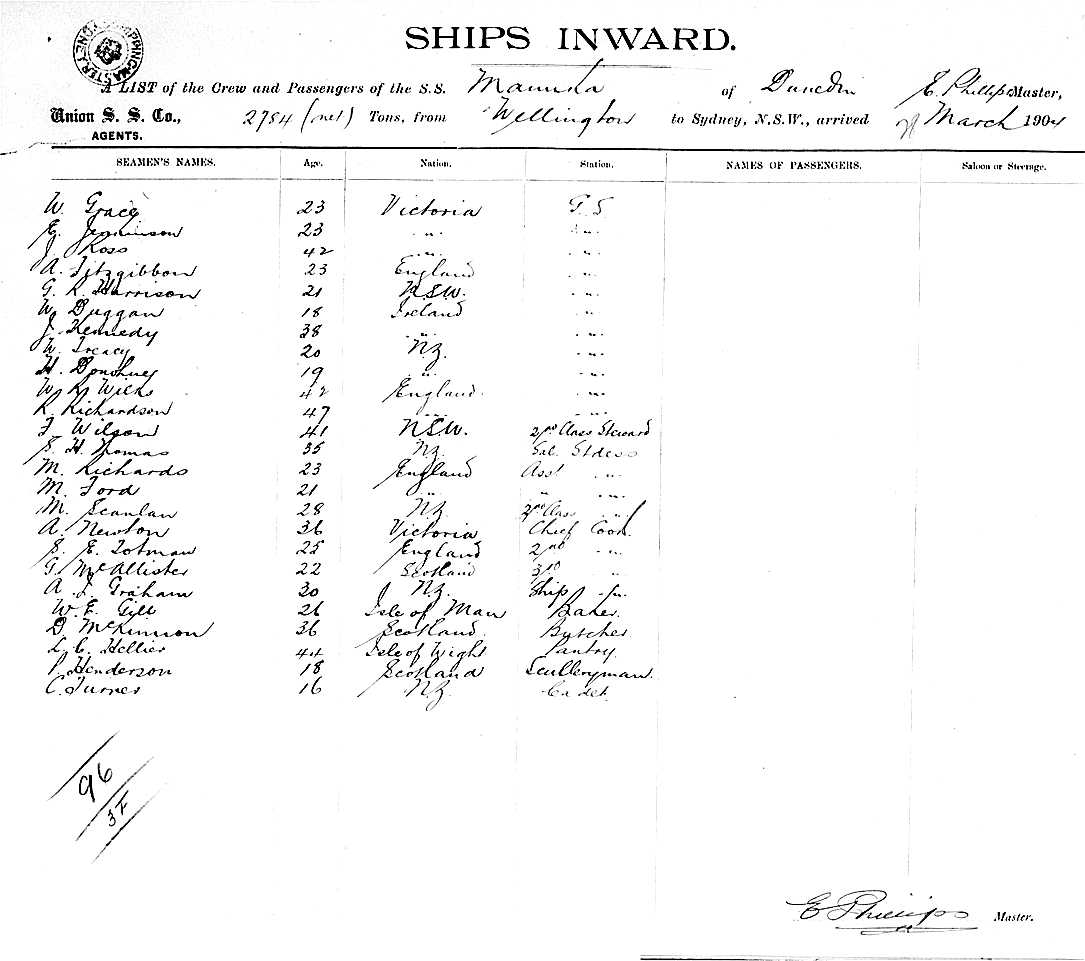 SHIPS INWARD.
A LIST of the Crew and Passengers of the S.S. Manuka of Dunedin E. Phillips Master,
Union S. S. Co., 2784 (net) Tons, from Wellington to Sydney, N.S.W., arrived March 1904
AGENTS.
SEAMEN'S NAMES. Age. Nation. Station. NAMES OF PASSENGERS. Saloon or Steerage.
W. Gracie 23 Victoria G. S
E. Jenkinson 23 " "
J. Ross 42 " "
A. Fitzgibbon 23 England "
G. R. Harrison 21 N.S.W. "
W. Duggan 18 Ireland "
J. Kennedy 38 " "
W. Treacy 20 N.Z. "
H. Donohue 19 " "
W. R. Wicks 42 England "
R. Richardson 47 " "
F. Wilson 41 N.S.W. 2nd Class Steward
S. H. Thomas 35 N.Z. Sal. Stdess
M. Richards 23 England Asst "
M. Ford 21 " " "
M. Scanlan 28 N.Z. 2nd Class "
A. Newton 36 Victoria Chief Cook.
S. E. Totman 25 England 2nd "
G. McAllister 22 Scotland 3rd "
A. J. Graham 30 N.Z. Ship "
W. E. Gill 26 Isle of Man Baker
D. McKinnon 36 Scotland. Butcher
L. C. Hellier 44 Isle of Wight Pantry
P. Henderson 18 Scotland Sculleryman.
C. Turner 16 N.Z. Cadet.
96
3F
E Phillips Master.